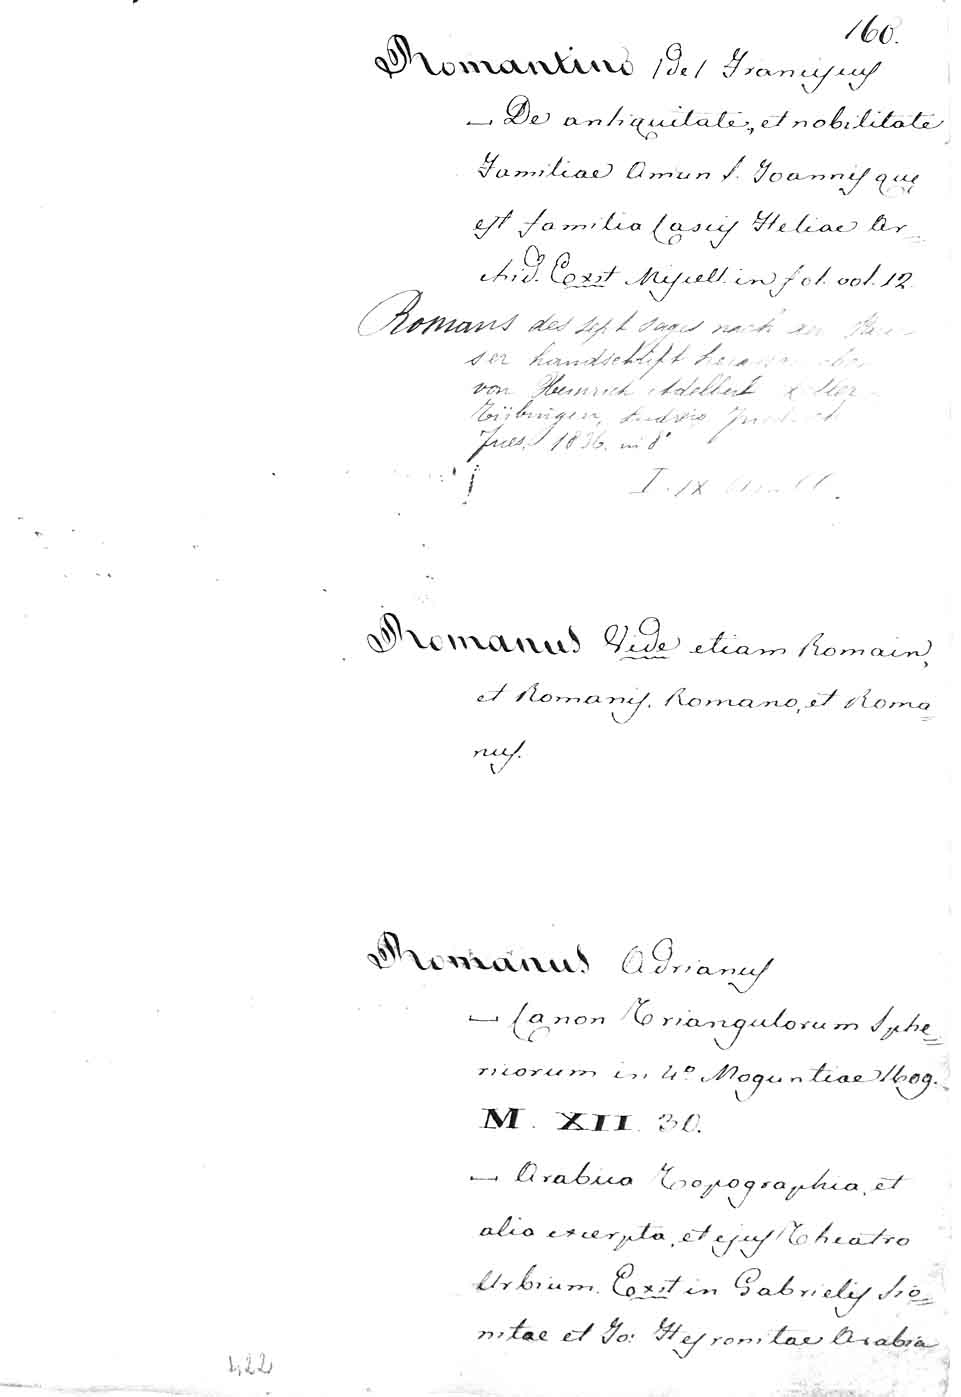 160.
Romantino (de) Franciscus
— De antiquitate, et nobilitate
Familiae Amun S. Joannis que
est familia Cascis Heliae Ar=
chid. Exst Miscell. in fol. vol. 12.
Romans des sept sages nach
ser handschrift
von Heinrich Adelbert Keller
Tübingen, Ludwig
Fues, 1836. in 8°
I. IX
Romanus Vide etiam Romain,
et Romanis. Romano, et Roma=
nus.
Romanus Adrianus
— Canon Triangulorum Sphe=
ricorum in 4° Moguntiae 1609.
M. XII. 30.
— Arabica Topographia, et
alia excerpta, et ejus Theatro
Urbium. Exst in Gabrielis Sio=
nitae et Jo: Hesronitae Arabia
422